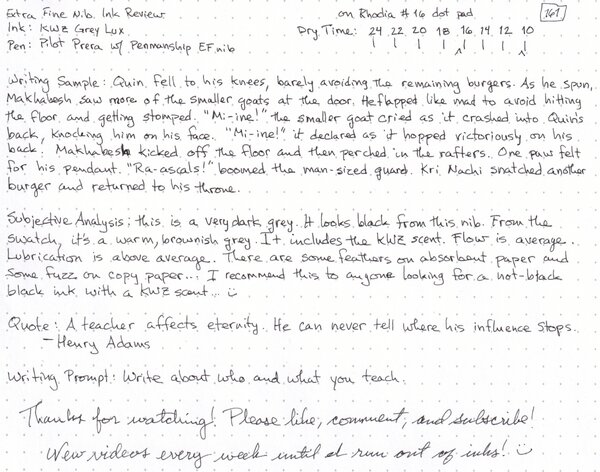 Extra Fine Nib Ink Review on Rhodia #16 dot pad 161
Ink: KWZ Grey Lux Dry Time: 24 22 20 18 16 14 12 10
Pen: Pilot Prera w/ Penmanship EF nib
Writing Sample: Quin fell to his knees, barely avoiding the remaining burgers. As he spun,
Makhabesh saw more of the smaller goats at the door. He flapped like mad to avoid hitting
the floor and getting stomped. "Mi-ine!" the smaller goat cried as it crashed into Quin's
back, knocking him on his face. "Mi-ine!" it declared as it hopped victoriously on his
back. Makhabesh kicked off the floor and then perched in the rafters. One paw felt
for his pendant. "Ra-ascals!" boomed the man-sized guard. Kri Nachi snatched another
burger and returned to his throne.
Subjective Analysis: this is a very dark grey. It looks black from this nib. From the
swatch, it's a warm, brownish grey. It includes the KWZ scent. Flow is average.
Lubrication is above average. There are some feathers on absorbent paper and
some fuzz on copy paper... I recommend this to anyone looking for a not-black
black ink with a KWZ scent... :)
Quote: A teacher affects eternity. He can never tell where his influence stops.
- Henry Adams
Writing Prompt: Write about who and what you teach.
Thanks for watching! Please like, comment, and subscribe!
New videos every week until I run out of inks! :)